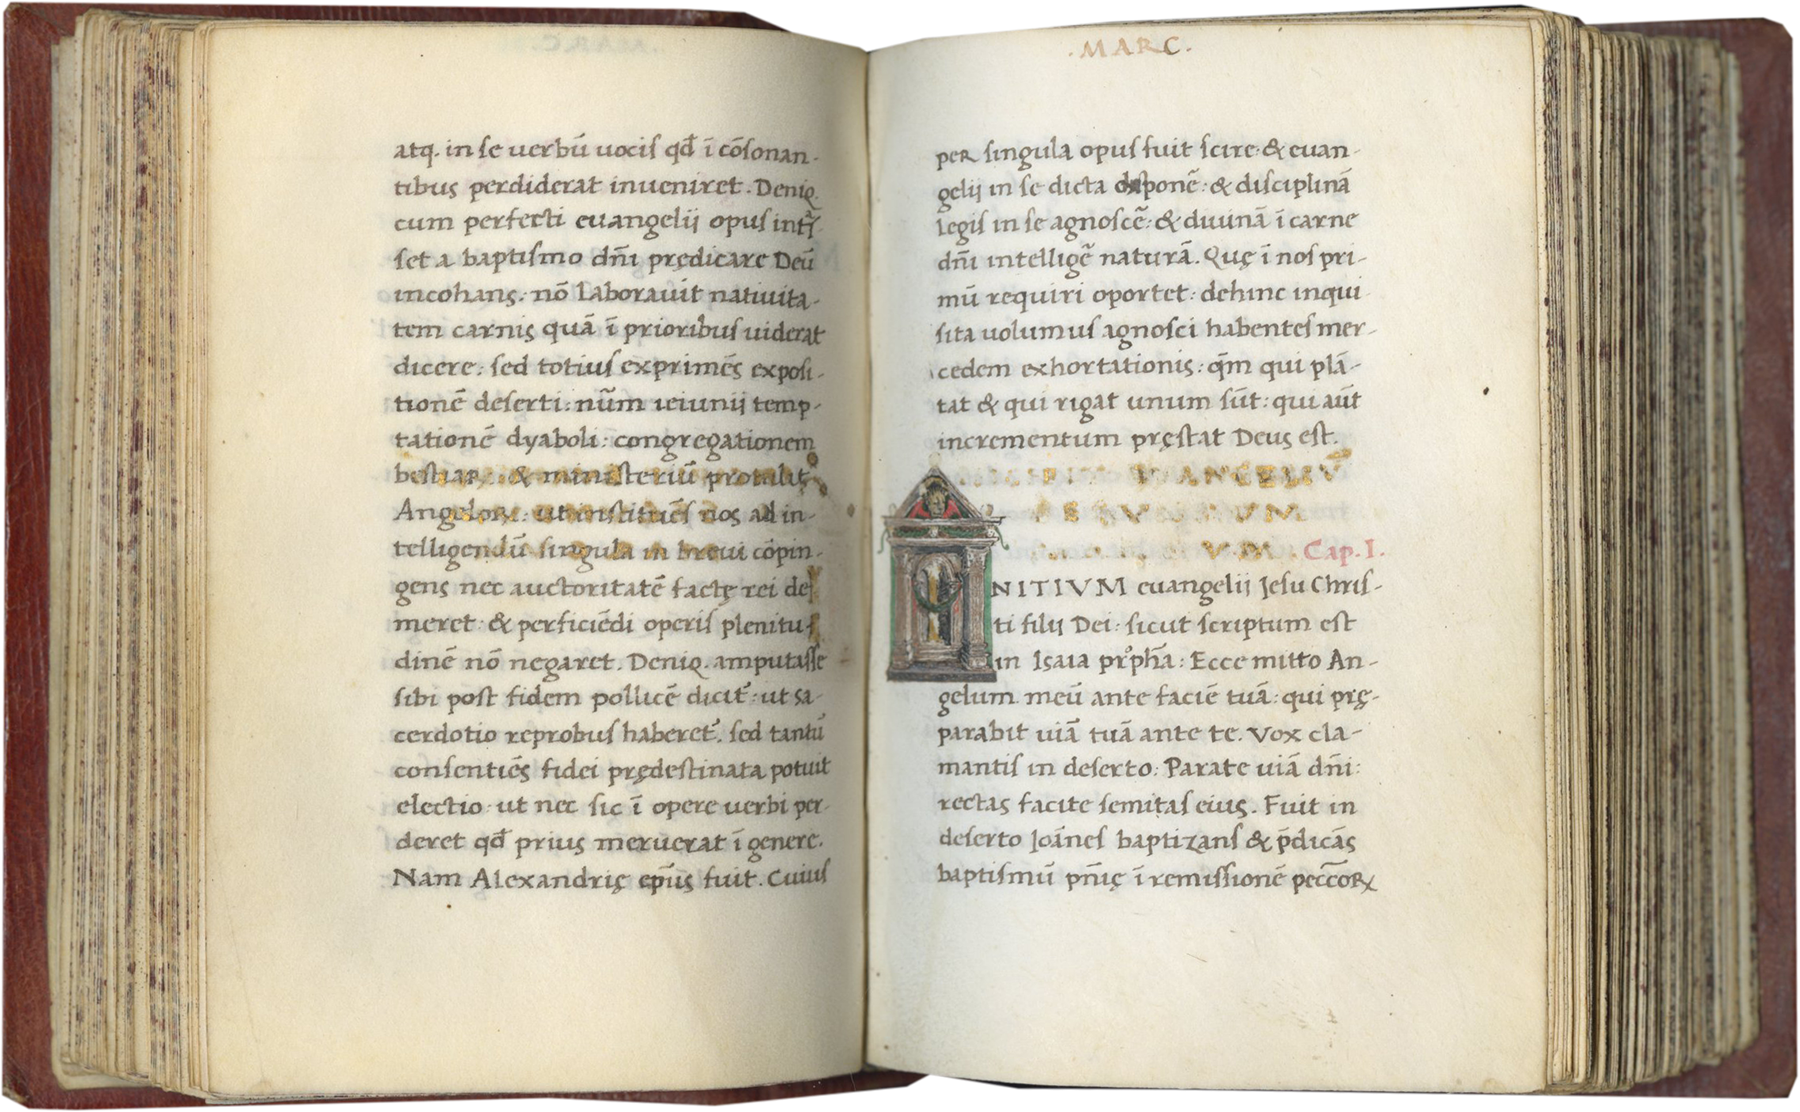 atq. in se uerbū uocis qđ ī cōsonan-
tibus perdiderat inueniret. Deniq.
cum perfecti euangelij opus intr̄s-
set a baptismo dn̄i prędicare Deū
incohans: nō laborauit natiuita-
tem carnis quā ī prioribus uiderat
dicere: sed totius exprimēs exposi-
tionē deserti: nūm ieiunij temp-
tationē dyaboli: congregationem
bestiaꝝ: & ministeriū protulit
Angeloꝝ: ut instituēs nos ad in-
telligendū singula in breui cōpin-
gens nec auctoritatē factę rei de-
meret: & perficiēdi operis plenitu-
dinē nō negaret. Deniq. amputasse
sibi post fidem pollicē dicit̄: ut sa-
cerdotio reprobus haberet̄. sed tantū
consentiēs fidei prędestinata potuit
electio: ut nec sic ī opere uerbi per-
deret qđ prius meruerat ī genere.
Nam Alexandrię ep̄us fuit. Cuius
.MARC.
per singula opus fuit scire: & euan-
gelij in se dicta disponē: & disciplinā
legis in se agnoscē: & diuinā ī carne
dn̄i intelligē naturā. Quę ī nos pri-
mū requiri oportet: dehinc inqui
sita uolumus agnosci habentes mer-
cedem exhortationis: qm̄ qui plā-
tat & qui rigat unum sūt: qui aūt
incrementum pręstat Deus est.
EVANGELIV̄
Cap. I.
INITIVM euangelij Jesu Chris-
ti filij Dei: sicut scriptum est
in Isaia pr°ph̄a: Ecce mitto An-
gelum meū ante faciē tuā: qui prę-
parabit uiā tuā ante te. Vox cla-
mantis in deserto: Parate uiā dn̄i:
rectas facite semitas eius. Fuit in
deserto Joānes baptizans & p̄dicās
baptismū pn̄ię ī remissionē peccc̄oꝝ